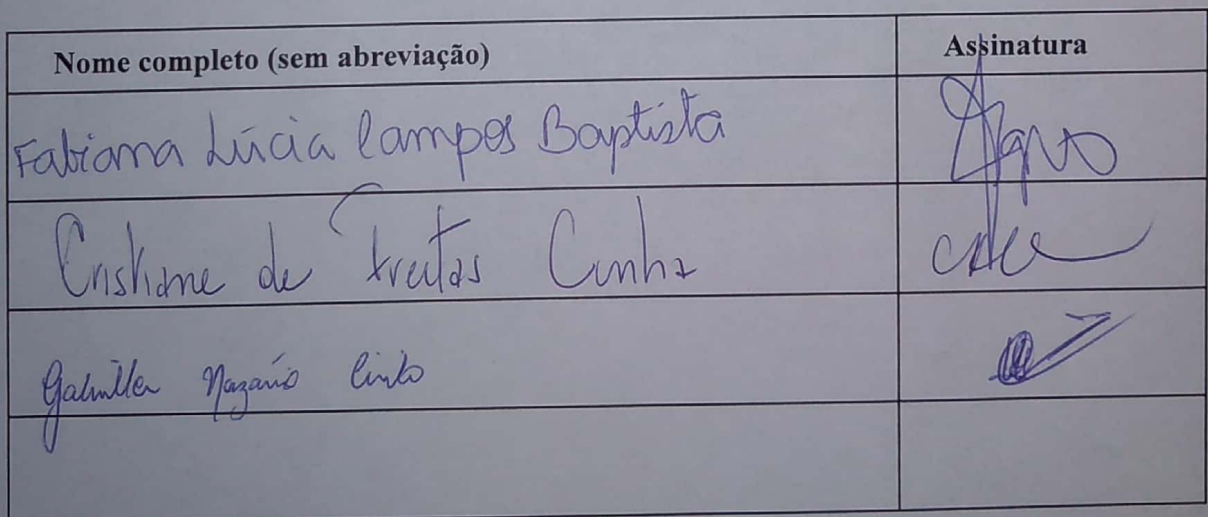 Nome completo (sem abreviação) Assinatura
Fabiana Lúcia Campos Baptista
Cristiane de Freitas Cunha
Nazario